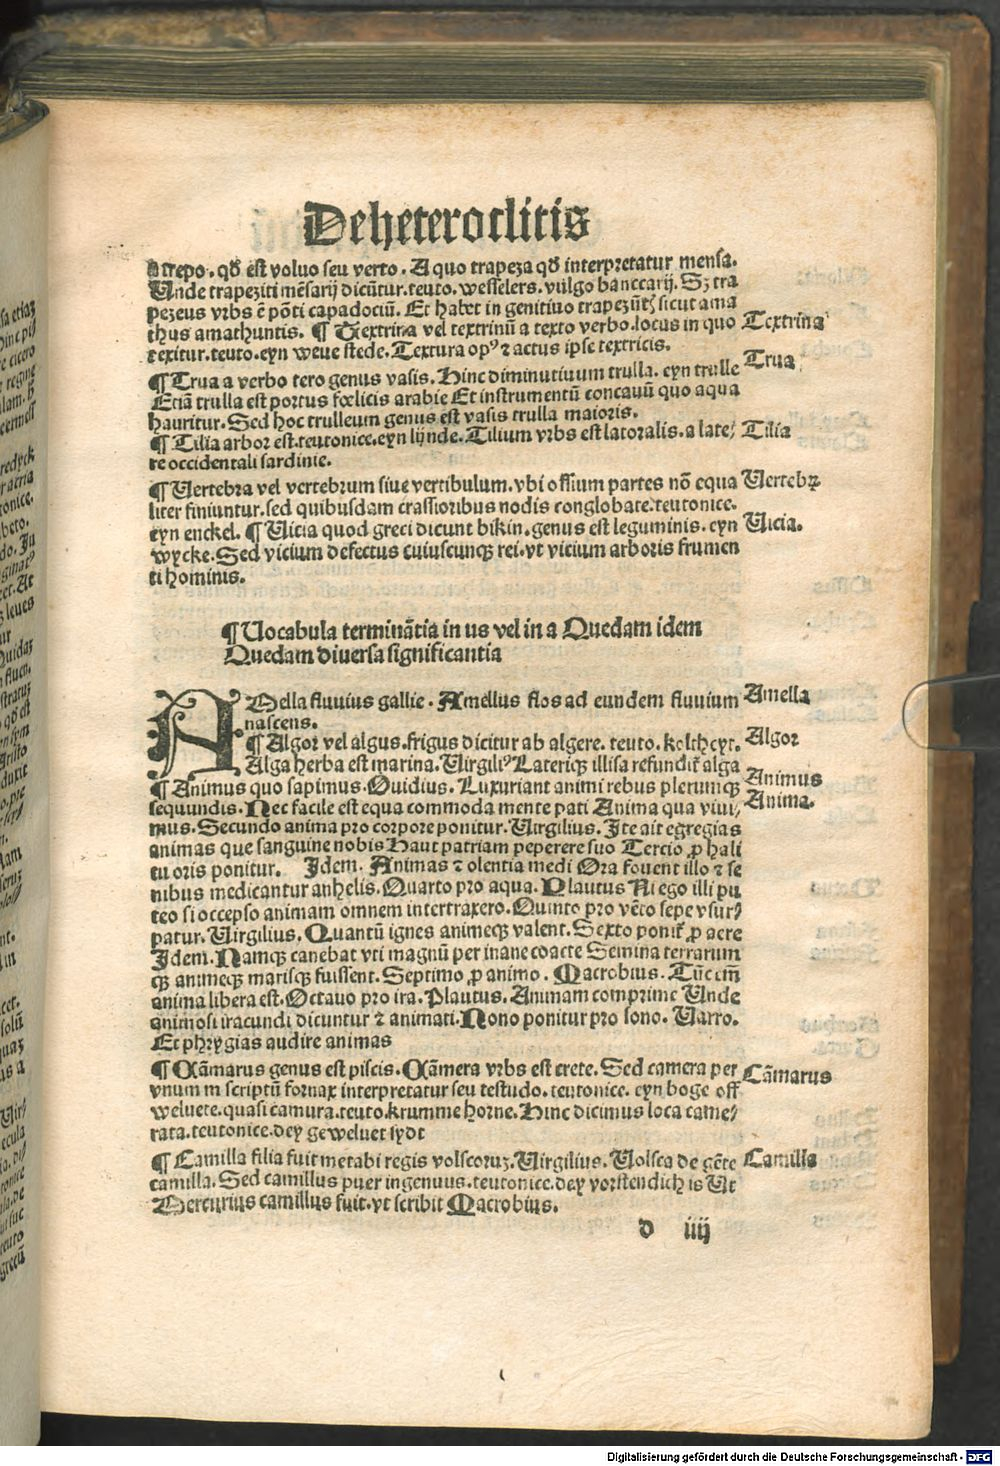 De heteroclitis
a trepo. qđ est voluo seu verto. A quo trapeza qđ interpretatur mensa.
Unde trapeziti mēsarij dicūtur.teuto.wesselers.vulgo banccarij. Sꝫ tra
pezeus vrbs ē pōti capadociū. Et habet in genitiuo trapezūtꝭ sicut ama
thus amathuntis. ¶ Textrina vel textrinū a texto verbo.locus in quo Textrina
texitur.teuto.eyn weue stede. Textura opꝰ ⁊ actus ipse textricis.
¶ Trua a verbo tero genus vasis. Hinc diminutiuum trulla. eyn trulle Trua
Etiā trulla est portus fœlicis arabie Et instrumentū concauū quo aqua
hauritur. Sed hoc trulleum genus est vasis trulla maioris.
¶ Tilia arbor est.teutonice.eyn lijnde. Tilium vrbs est latoralis. a late⸗ Tilia
re occidentali sardinie.
¶ Uertebra vel vertebrum siue vertibulum. vbi ossium partes nō equa Uertebꝛa
liter finiuntur.sed quibusdam crassioribus nodis conglobate.teutonice.
eyn enckel. ¶ Uicia quod greci dicunt bikin.genus est leguminis. eyn Uicia.
wycke. Sed vicium defectus cuiuscunqꝫ rei.vt vicium arboris frumen
ti hominis.
¶ Uocabula terminātia in us vel in a Quedam idem
Quedam diuersa significantia
ADella fluuius gallie. Amellus flos ad eundem fluuium Amella
nascens.
¶ Algor vel algus.frigus dicitur ab algere. teuto. koltheyt. Algor
Alga herba est marina. Uirgiliꝰ Lateriqꝫ illisa refundit̃ alga
¶ Animus quo sapimus. Ouidius. Luxuriant animi rebus plerumqꝫ Animus
sequundis. Nec facile est equa commoda mente pati Anima qua viui⸗ Anima.
mus. Secundo anima pro corpore ponitur. Uirgilius. Ite ait egregias
animas que sanguine nobis Haut patriam peperere suo Tercio ꝓ hali
tu oris ponitur. Idem. Animas ⁊ olentia medi Ora fouent illo ⁊ se
nibus medicantur anhelis. Quarto pro aqua. Plautus Ni ego illi pu
teo si occepso animam omnem intertraxero. Quinto pro vēto sepe vsur⸗
patur. Uirgilius. Quantū ignes animeqꝫ valent. Sexto ponit̃ ꝓ aere
Idem. Namqꝫ canebat vti magnū per inane coacte Semina terrarum
qꝫ animeqꝫ marisqꝫ fuissent. Septimo ꝓ animo. Macrobius. Tūc im̄
anima libera est. Octauo pro ira. Plautus. Animam comprime Unde
animosi iracundi dicuntur ⁊ animati. Nono ponitur pro sono. Uarro.
Et phrygias audire animas
¶ Cāmarus genus est piscis. Cāmera vrbs est crete. Sed camera per Cāmarus
vnum m scriptū fornax interpretatur seu testudo. teutonice. eyn boge off
weluete.quasi camura.teuto.krumme horne. Hinc dicimus loca came⸗
rata.teutonice.dey geweluet sydt
¶ Camilla filia fuit metabi regis volscoruꝫ. Uirgilius. Uolsca de gēte Camilla
camilla. Sed camillus puer ingenuus.teutonice.dey vorstendich is Ut
Mercurius camillus fuit. vt scribit Macrobius.
d iiij
Digitalisierung gefördert durch die Deutsche Forschungsgemeinschaft - DFG